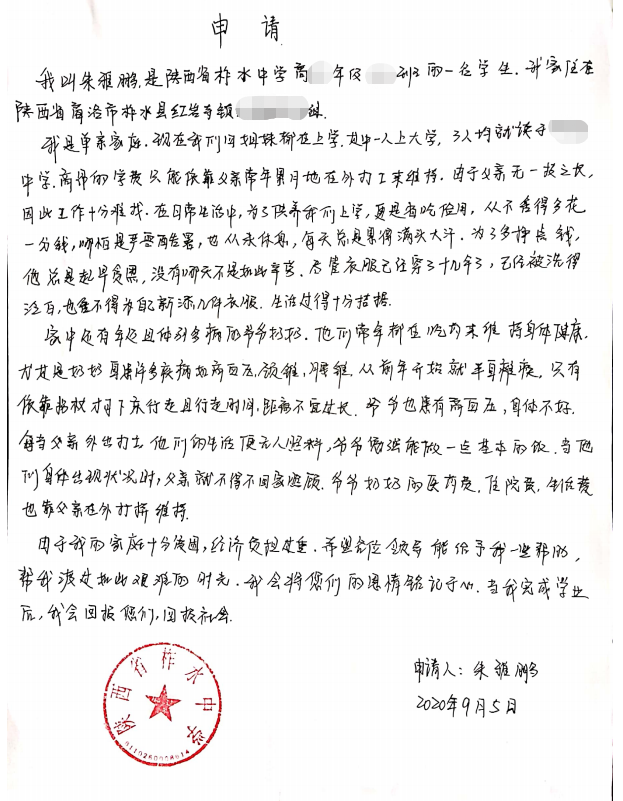 申 请
我叫朱雅鹏,是陕西省柞水中学高 年级 班的一名学生.我家住在
陕西省商洛市柞水县红岩寺镇 村.
我是单亲家庭.现在我们四姐妹都在上学.其中一人上大学,3人均就读于
中学.高昂的学费只能依靠父亲常年累月地在外打工来维持.由于父亲无一技之长,
因此工作十分难找.在日常生活中,为了供养我们上学,更是省吃俭用,从不舍得多花
一分钱,哪怕是严寒酷暑,也从未休息,每天总是累得满头大汗.为了多挣点钱,
他总是起早贪黑,没有哪天不是如此辛苦.尽管衣服已经穿了十几年了,已经被洗得
泛白,也舍不得为自己新添几件衣服.生活过得十分拮据.
家中还有年迈且体弱多病的爷爷奶奶.他们常年都在吃药来维持身体健康.
尤其是奶奶身患许多疾病如高血压,颈椎,腰椎.从前年开始就半身瘫痪,只有
依靠拐杖才可下床行走且行走时间,距离不宜过长.爷爷也患有高血压,身体不好.
每当父亲外出打工他们的生活便无人照料,爷爷勉强能做一点基本的饭.当他
们身体出现状况时,父亲就不得不回家照顾.爷爷奶奶的医药费,住院费,生活费
也靠父亲在外打拼维持.
由于我的家庭十分贫困,经济负担过重.希望各位领导能给予我一些帮助,
帮我渡过如此艰难的时光.我会将您们的恩情铭记于心.当我完成学业
后,我会回报您们,回报社会.
申请人:朱雅鹏
2020年9月5日
陕西省柞水中学